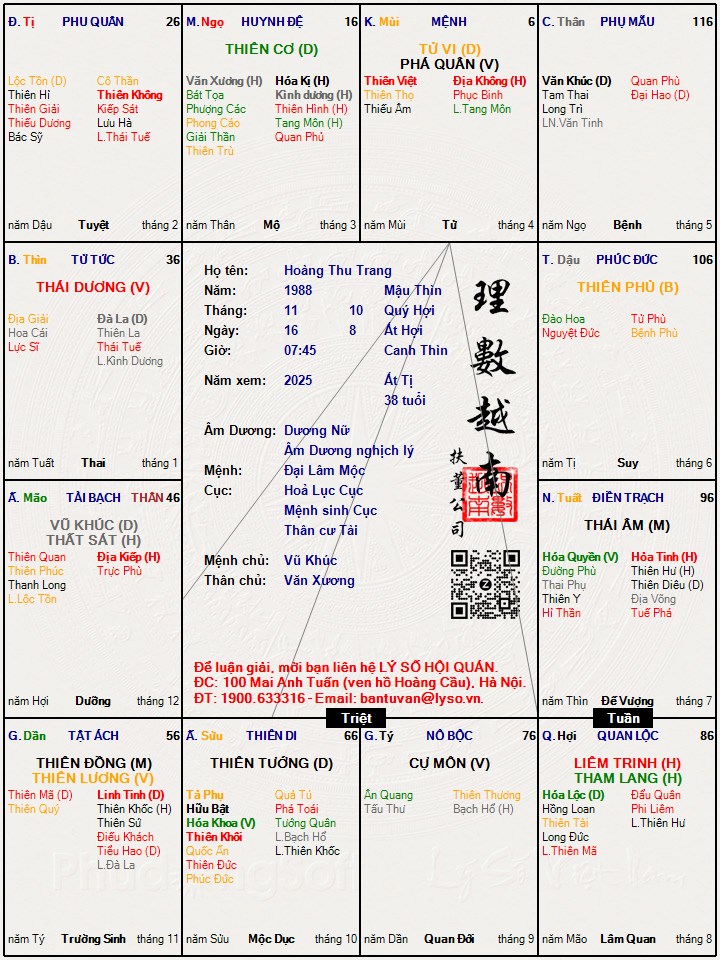 Đ. Tị PHU QUÂN 26
Lộc Tồn (D) Cô Thần
Thiên Hỉ Thiên Không
Thiên Giải Kiếp Sát
Thiếu Dương Lưu Hà
Bác Sỹ L.Thái Tuế
năm Dậu Tuyệt tháng 2
M. Ngọ HUYNH ĐỆ 16
THIÊN CƠ (D)
Văn Xương (H) Hóa Kị (H)
Bát Tọa Kình dương (H)
Phượng Các Thiên Hình (H)
Phong Cáo Tang Môn (H)
Giải Thần Quan Phủ
Thiên Trù
năm Thân Mộ tháng 3
K. Mùi MỆNH 6
TỬ VI (D)
PHÁ QUÂN (V)
Thiên Việt Địa Không (H)
Thiên Thọ Phục Binh
Thiếu Âm L.Tang Môn
năm Mùi Tử tháng 4
C. Thân PHỤ MẪU 116
Văn Khúc (D) Quan Phù
Tam Thai Đại Hao (D)
Long Trì
LN.Văn Tinh
năm Ngọ Bệnh tháng 5
B. Thìn TỬ TỨC 36
THÁI DƯƠNG (V)
Địa Giải Đà La (D)
Hoa Cái Thiên La
Lực Sĩ Thái Tuế
L.Kình Dương
năm Tuất Thai tháng 1
Họ tên: Hoàng Thu Trang
Năm: 1988 Mậu Thìn
Tháng: 11 10 Quý Hợi
Ngày: 16 8 Ất Hợi
Giờ: 07:45 Canh Thìn
Năm xem: 2025 Ất Tị
38 tuổi
Âm Dương: Dương Nữ
Âm Dương nghịch lý
Mệnh: Đại Lâm Mộc
Cục: Hoả Lục Cục
Mệnh sinh Cục
Thân cư Tài
Mệnh chủ: Vũ Khúc
Thân chủ: Văn Xương
理數越南
扶董公司
Để luận giải, mời bạn liên hệ LÝ SỐ HỘI QUÁN.
ĐC: 100 Mai Anh Tuấn (ven hồ Hoàng Cầu), Hà Nội.
ĐT: 1900.633316 - Email: bantuvan@lyso.vn.
T. Dậu PHÚC ĐỨC 106
THIÊN PHỦ (B)
Đào Hoa Tử Phù
Nguyệt Đức Bệnh Phù
năm Tị Suy tháng 6
Ấ. Mão TÀI BẠCH THÂN 46
VŨ KHÚC (D)
THẤT SÁT (H)
Thiên Quan Địa Kiếp (H)
Thiên Phúc Trực Phù
Thanh Long
L.Lộc Tồn
năm Hợi Dưỡng tháng 12
N. Tuất ĐIỀN TRẠCH 96
THÁI ÂM (M)
Hóa Quyền (V) Hỏa Tinh (H)
Đường Phù Thiên Hư (H)
Thai Phụ Thiên Diêu (D)
Thiên Y Địa Võng
Hỉ Thần Tuế Phá
năm Thìn Đế Vượng tháng 7
Triệt
Tuần
G. Dần TẬT ÁCH 56
THIÊN ĐỒNG (M)
THIÊN LƯƠNG (V)
Thiên Mã (D) Linh Tinh (D)
Thiên Quý Thiên Khốc (H)
Thiên Sứ
Điếu Khách
Tiểu Hao (D)
L.Đà La
năm Tý Trường Sinh tháng 11
Ấ. Sửu THIÊN DI 66
THIÊN TƯỚNG (D)
Tả Phụ Quả Tú
Hữu Bật Phá Toái
Hóa Khoa (V) Tướng Quân
Thiên Khôi L.Bạch Hổ
Quốc Ấn L.Thiên Khốc
Thiên Đức
Phúc Đức
năm Sửu Mộc Dục tháng 10
G. Tý NÔ BỘC 76
CỰ MÔN (V)
Ân Quang Thiên Thương
Tấu Thư Bạch Hổ (H)
năm Dần Quan Đới tháng 9
Q. Hợi QUAN LỘC 86
LIÊM TRINH (H)
THAM LANG (H)
Hóa Lộc (D) Đẩu Quân
Hồng Loan Phi Liêm
Thiên Tài L.Thiên Hư
Long Đức
L.Thiên Mã
năm Mão Lâm Quan tháng 8